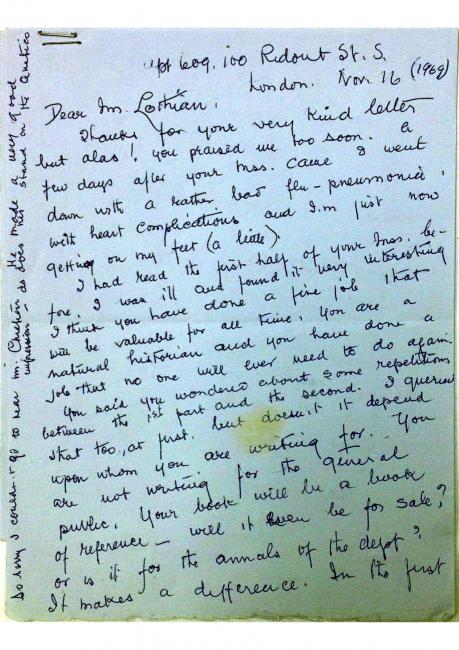 Apt 609. 100 Ridout St. S.
London. Nov. 16 (1969)
Dear Mr. Lothian,
Thanks for your very kind letter
but alas! you praised me too soon. A
few days after your mss. came I went
down with a rather bad flu-pneumonia,
with heart complications and I'm just now
getting on my feet (a little).
I had read the first half of your mss. be-
fore I was ill and found it very interesting
I think you have done a fine job that
will be valuable for all time, you are a
natural historian and you have done a
job that no one will ever need to do again
You said you wondered about some repetitions
between the 1st part and the second. I queried
that too, at first, but doesn't it depend
upon whom you are writing for. You
are not writing for the general
public. Your book will be a book
of reference – will it even be for sale?
or is it for the annals of the depot?
It makes a difference. In the first
So sorry I couldn't go to hear Mr. – He made a very good
impression – as does his stand on the